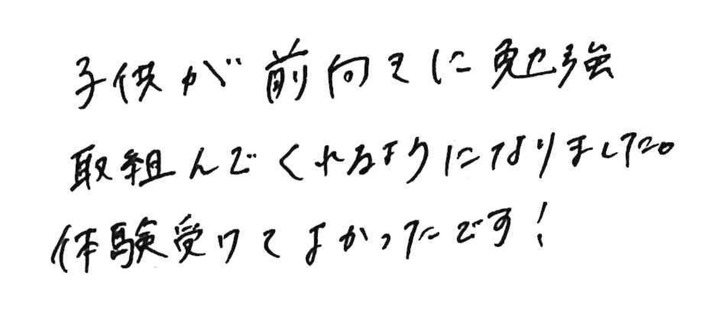 子供が前向きに勉強
取組んでくれるようになりました。
体験受けてよかったです!